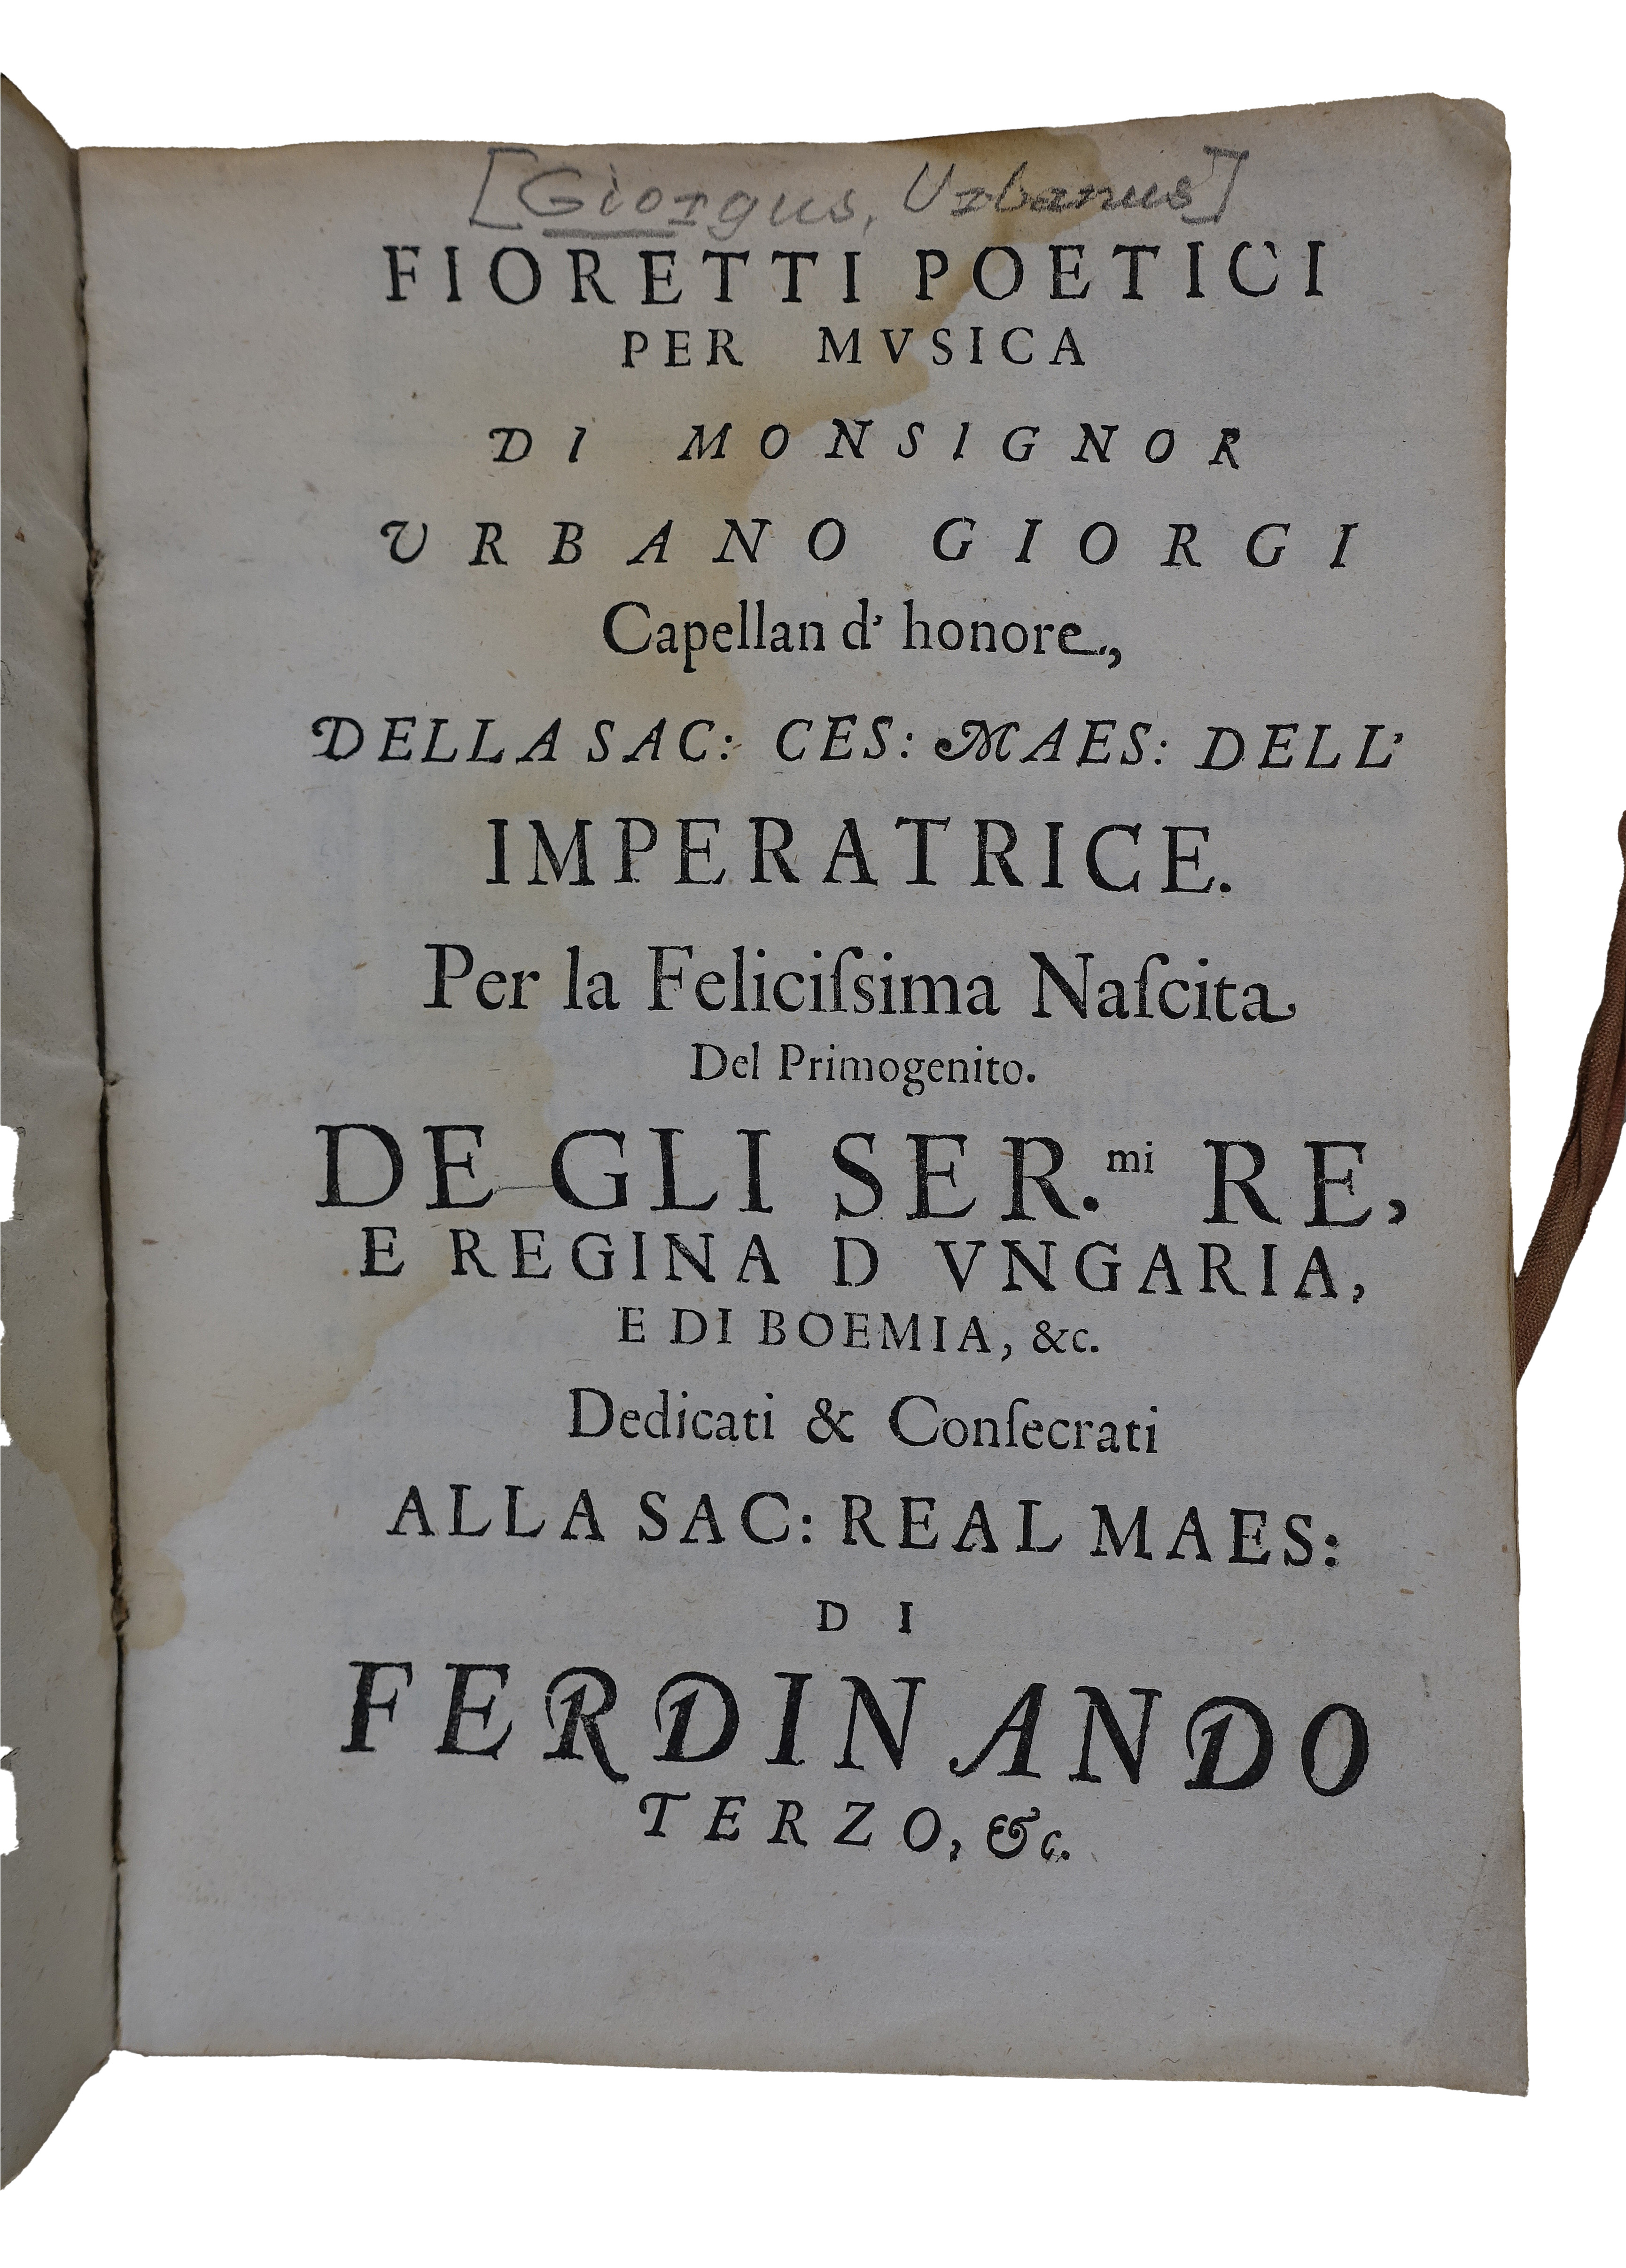 [Giorgus, Urbanus]
FIORETTI POETICI
PER MVSICA
DI MONSIGNOR
URBANO GIORGI
Capellan d' honore,
DELLA SAC: CES: MAES: DELL'
IMPERATRICE.
Per la Feliciſsima Naſcita
Del Primogenito.
DE GLI SER.mi RE,
E REGINA D VNGARIA,
E DI BOEMIA, &c.
Dedicati & Conſecrati
ALLA SAC: REAL MAES:
DI
FERDINANDO
TERZO, &c.